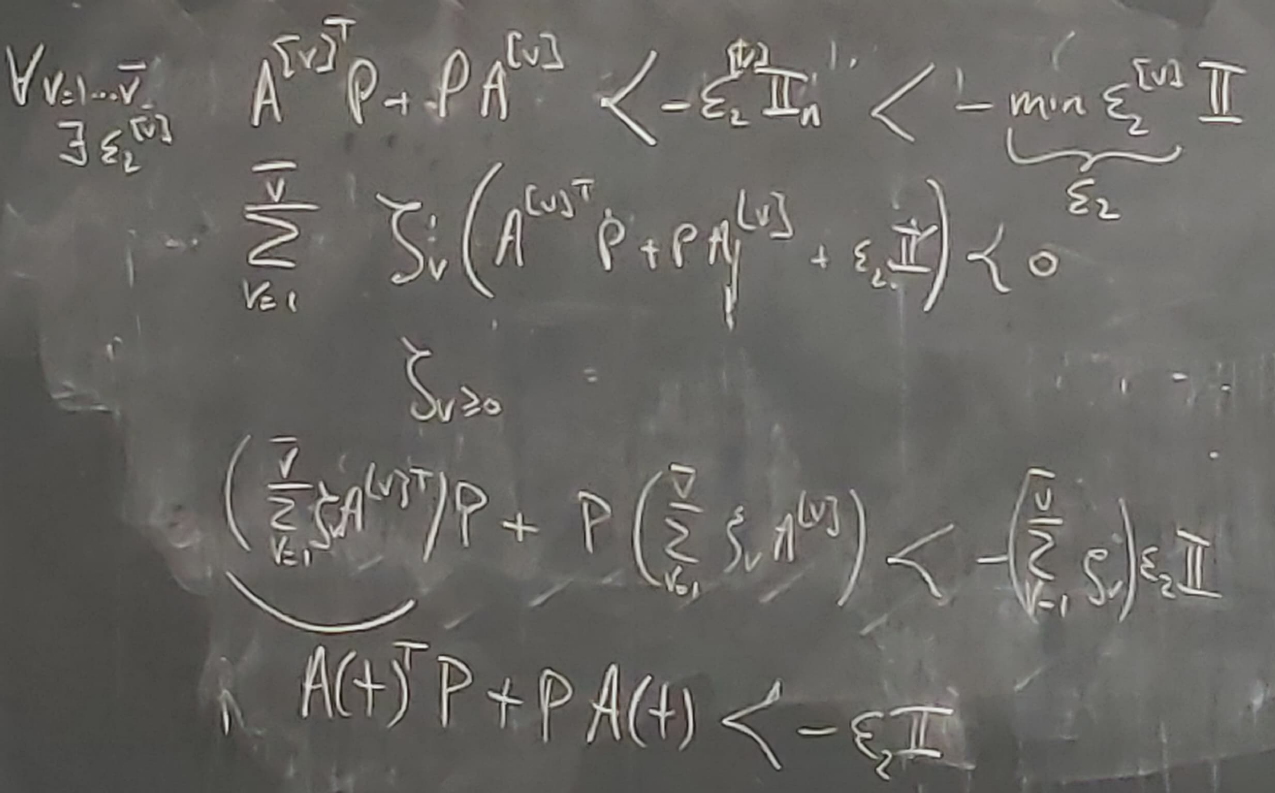 ∀ v=1...v̄ A^{[v]^T} P + P A^{[v]} < -ε_2^{[v]} 𝕀_n < - min ε_2^{[v]} 𝕀
∃ ε_2^{[v]} ε_2
∑_{v=1}^{v̄} ζ_v ( A^{[v]^T} P + P A^{[v]} + ε_2 𝕀 ) < 0
ζ_v ≥ 0
( ∑_{v=1}^{v̄} ζ_v A^{[v]^T} ) P + P ( ∑_{v=1}^{v̄} ζ_v A^{[v]} ) < - ( ∑_{v=1}^{v̄} ζ_v ) ε_2 𝕀
A(t)^T P + P A(t) < - ε_2 𝕀